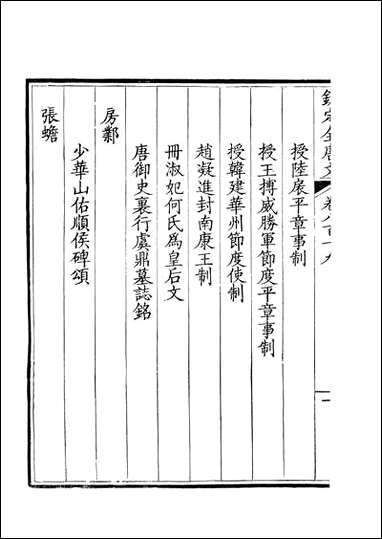 欽定全唐文 卷八百十九 一
授陸扆平章事制
授王摶威勝軍節度平章事制
授韓建華州節度使制
趙凝進封南康王制
冊淑妃何氏為皇后文
唐御史裏行虞鼎墓誌銘
房鄴
少華山佑順侯碑頌
張蟾